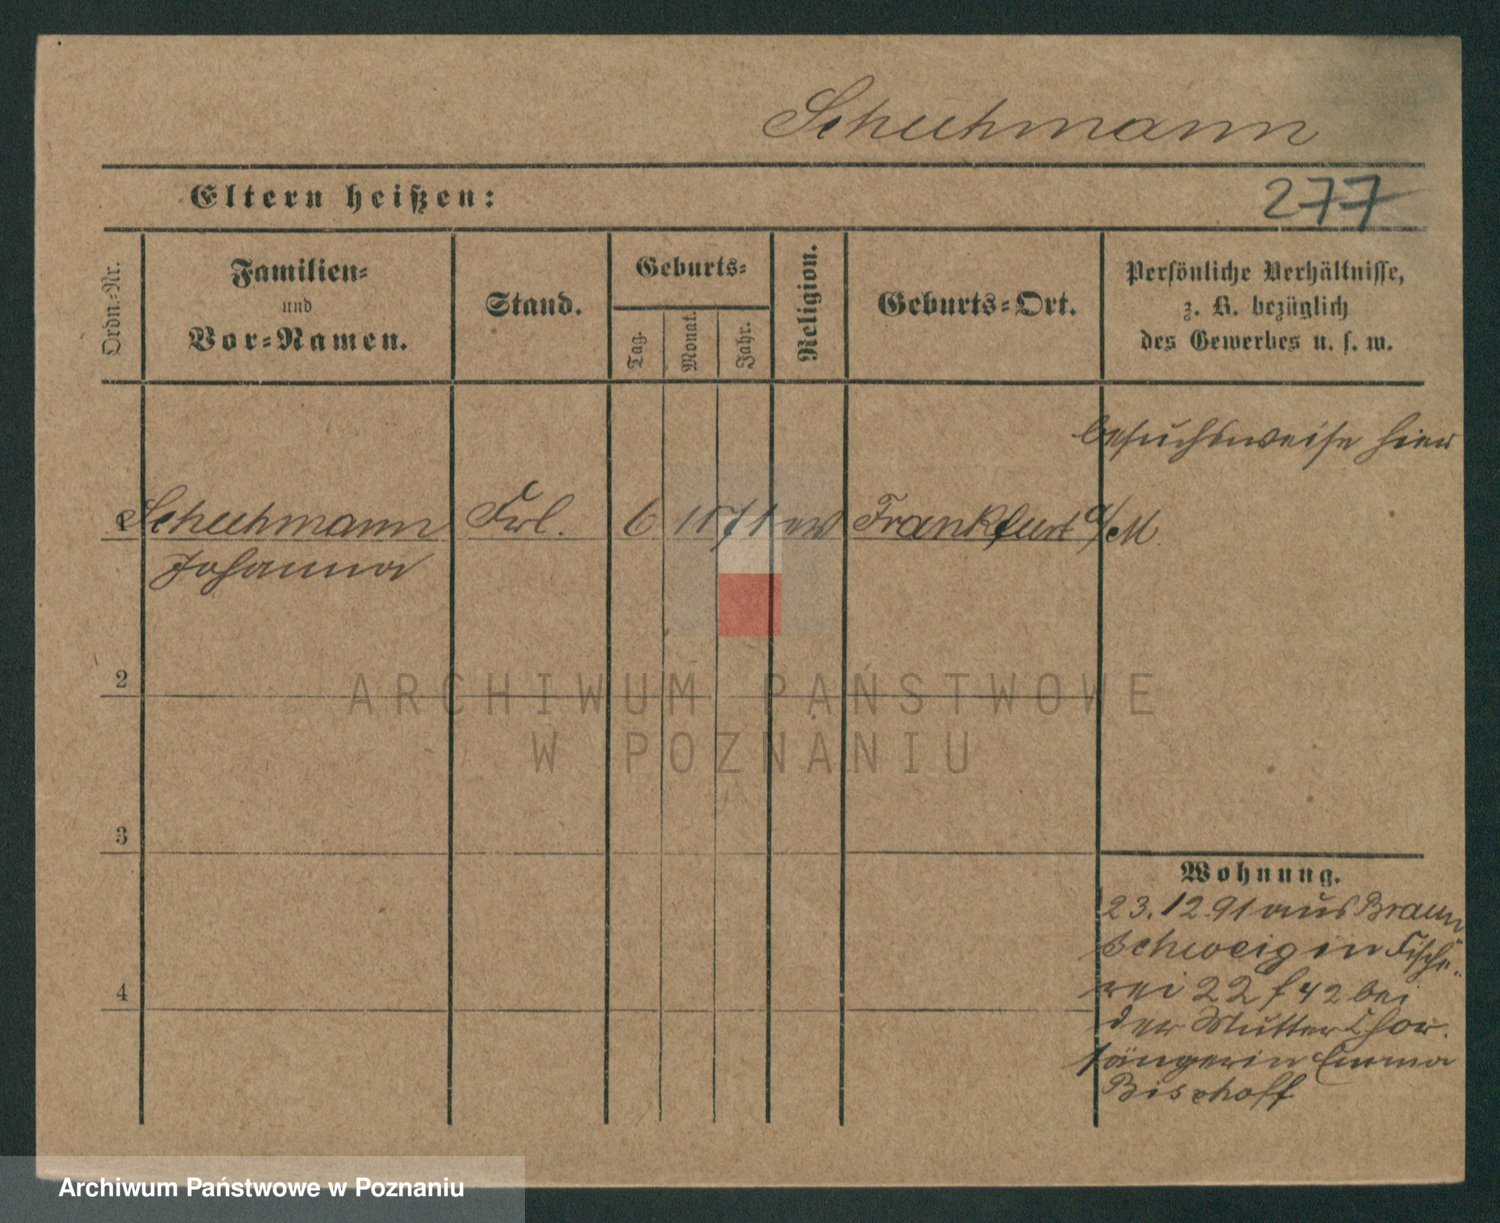 Schuhmann
Eltern heißen:
277
Ordn.-Nr.
Familien-
und
Vor-Namen.
Stand.
Geburts-
Tag.
Monat.
Jahr.
Religion.
Geburts-Ort.
Persönliche Verhältnisse,
z. B. bezüglich
des Gewerbes u. s. w.
besuchsweise hier
Schuhmann Frl. 6 71 ev Frankfurt a/M.
Johanna
2
3
4
Wohnung.
23.12.91 aus Braun
schweig in Fische
rei 22 f 42 bei
der Mutter Chor
sängerin Emma
Bischoff
ARCHIWUM PAŃSTWOWE
W POZNANIU
Archiwum Państwowe w Poznaniu